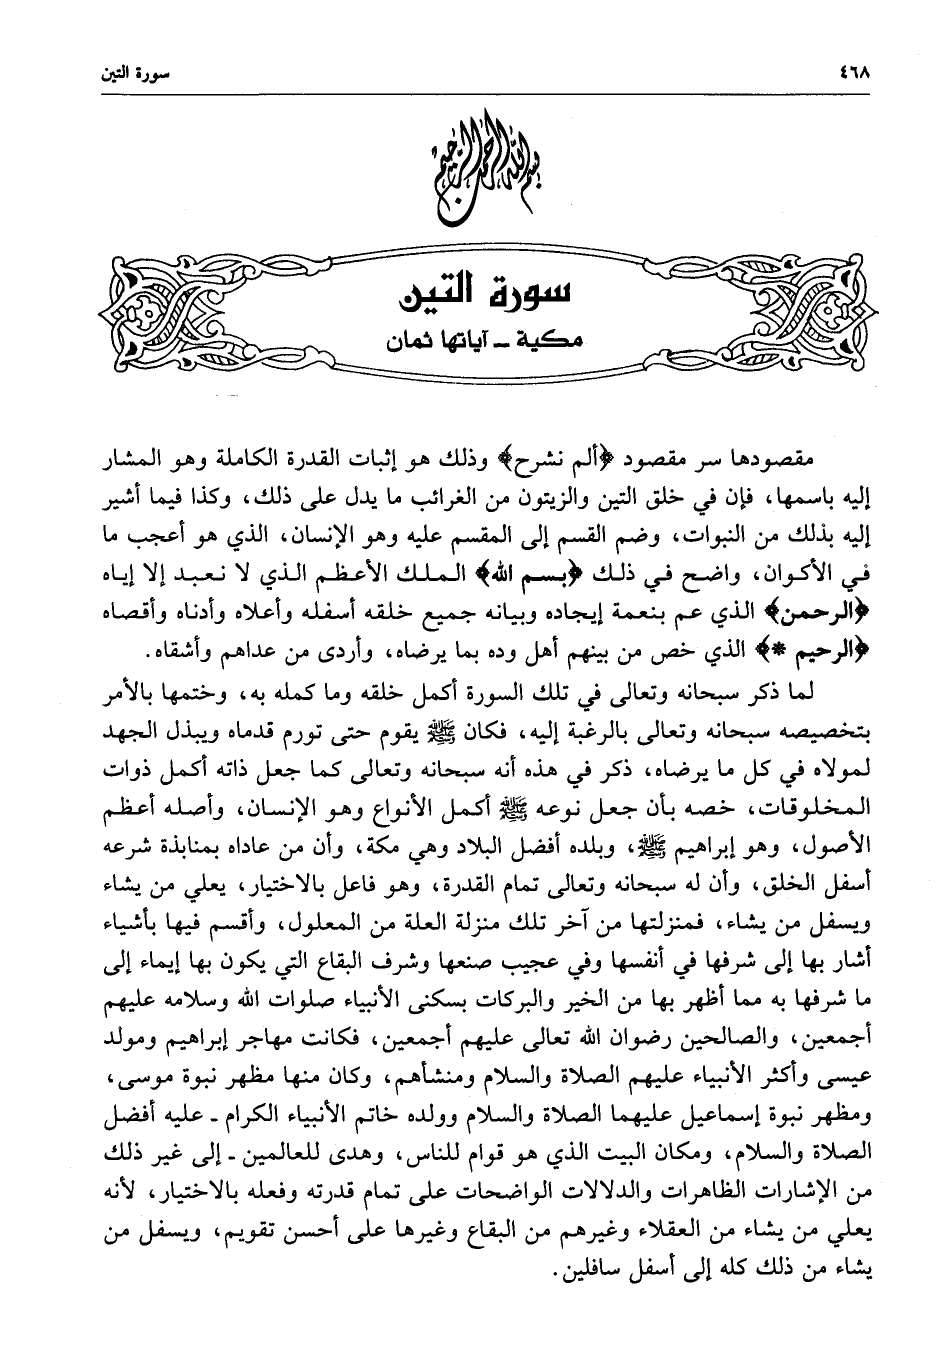 ٤٦٨
سورة التين
بسم الله الرحمن الرحيم
سورة التين
مكية ـ آياتها ثمان
مقصودها سر مقصود ﴿ألم نشرح﴾ وذلك هو إثبات القدرة الكاملة وهو المشار
إليه باسمها، فإن في خلق التين والزيتون من الغرائب ما يدل على ذلك، وكذا فيما أشير
إليه بذلك من النبوات، وضم القسم إلى المقسم عليه وهو الإنسان، الذي هو أعجب ما
في الأكوان، واضح في ذلك ﴿بسم الله﴾ الملك الأعظم الذي لا نعبد إلا إياه
﴿الرحمن﴾ الذي عم بنعمة إيجاده وبيانه جميع خلقه أسفله وأعلاه وأدناه وأقصاه
﴿الرحيم *﴾ الذي خص من بينهم أهل وده بما يرضاه، وأردى من عداهم وأشقاه.
لما ذكر سبحانه وتعالى في تلك السورة أكمل خلقه وما كمله به، وختمها بالأمر
بتخصيصه سبحانه وتعالى بالرغبة إليه، فكان ﷺ يقوم حتى تورم قدماه ويبذل الجهد
لمولاه في كل ما يرضاه، ذكر في هذه أنه سبحانه وتعالى كما جعل ذاته أكمل ذوات
المخلوقات، خصه بأن جعل نوعه ﷺ أكمل الأنواع وهو الإنسان، وأصله أعظم
الأصول، وهو إبراهيم ﷺ، وبلده أفضل البلاد وهي مكة، وأن من عاداه بمنابذة شرعه
أسفل الخلق، وأن له سبحانه وتعالى تمام القدرة، وهو فاعل بالاختيار، يعلي من يشاء
ويسفل من يشاء، فمنزلتها من آخر تلك منزلة العلة من المعلول، وأقسم فيها بأشياء
أشار بها إلى شرفها في أنفسها وفي عجيب صنعها وشرف البقاع التي يكون بها إيماء إلى
ما شرفها به مما أظهر بها من الخير والبركات بسكنى الأنبياء صلوات الله وسلامه عليهم
أجمعين، والصالحين رضوان الله تعالى عليهم أجمعين، فكانت مهاجر إبراهيم ومولد
عيسى وأكثر الأنبياء عليهم الصلاة والسلام ومنشأهم، وكان منها مظهر نبوة موسى،
ومظهر نبوة إسماعيل عليهما الصلاة والسلام وولده خاتم الأنبياء الكرام ـ عليه أفضل
الصلاة والسلام، ومكان البيت الذي هو قوام للناس، وهدى للعالمين ـ إلى غير ذلك
من الإشارات الظاهرات والدلالات الواضحات على تمام قدرته وفعله بالاختيار، لأنه
يعلي من يشاء من العقلاء وغيرهم من البقاع وغيرها على أحسن تقويم، ويسفل من
يشاء من ذلك كله إلى أسفل سافلين.